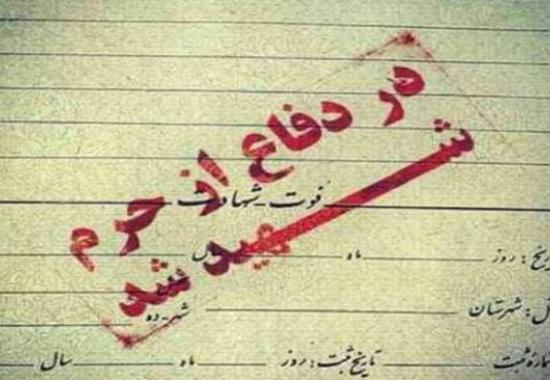 در دفاع از حرم
شهید شد
فوت - شهادت
روز ماه سال
شهرستان شهر - ده
تاریخ ثبت : روز ماه سال